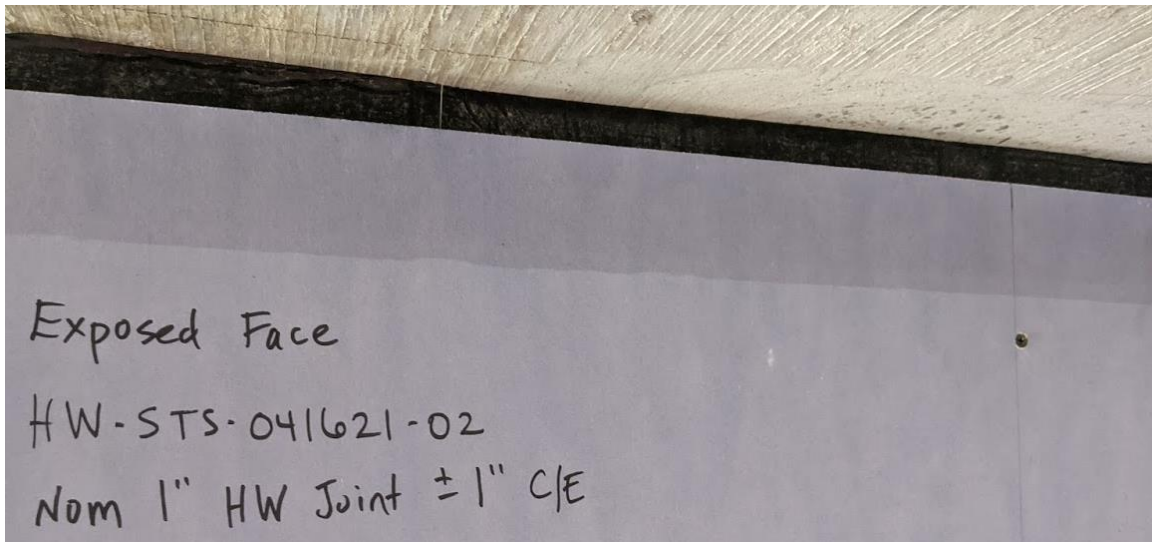 Exposed Face
HW-STS-041621-02
Nom 1" HW Joint ± 1" C/E